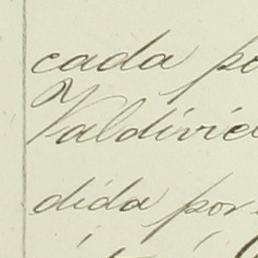 cada po
Valdivie
dida por